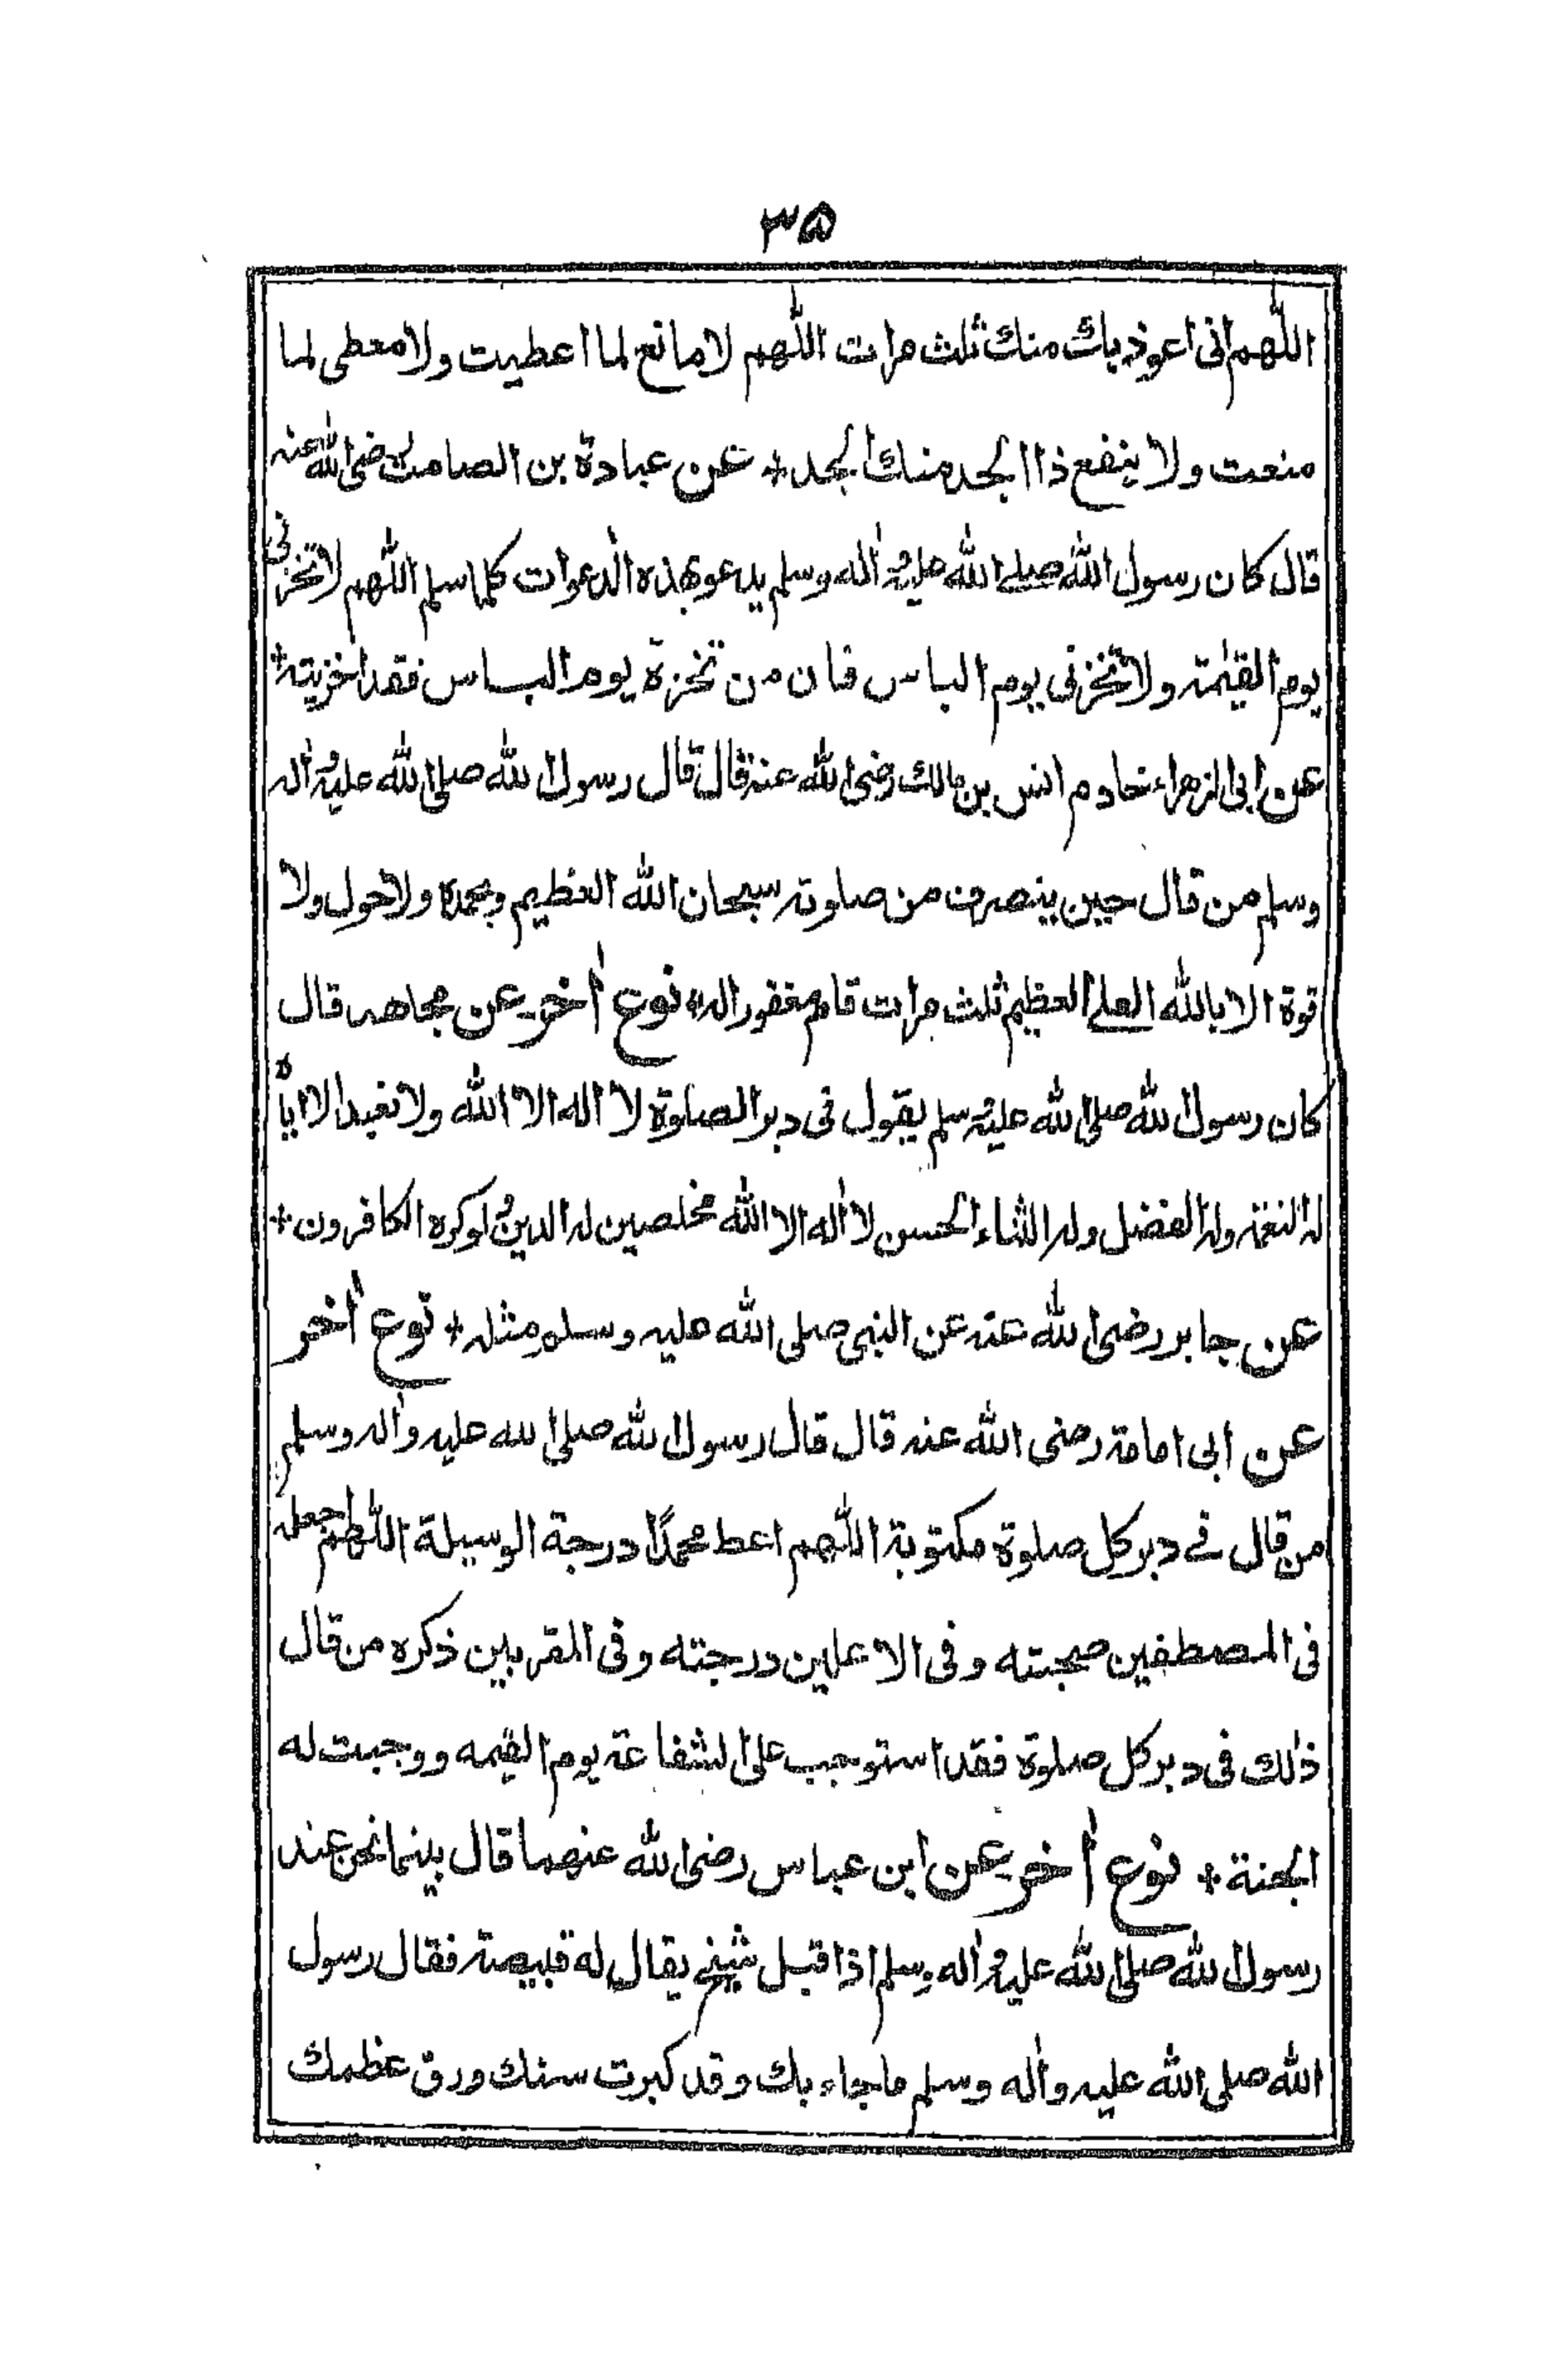 ۳۵
اللّٰهم انى اعوذ بك منك ثلث مرات اللّٰهم لا مانع لما اعطيت ولا معطى لما
منعت ولا ينفع ذا الجد منك الجد + عن عبادة بن الصامت رضى الله عنه
قال كان رسول الله صلے الله عليه وٰاله وسلم يدعو بهذه الدعوات كلما سلم اللّٰهم لا تخزنى
يوم القيٰمة ولا تخزنى يوم الباس فان من تخزة يوم الباس فقد اخزيته +
عن ابى الزهراء خادم انس بن مالك رضى الله عنه قال قال رسول الله صلى الله عليه وٰاله
وسلم من قال حين ينصرف من صلوته سبحان الله العظيم وبحمده ولا حول ولا
قوة الا بالله العلے العظيم ثلث مرات قام مغفورا له + نوع اٰخر عن مجاهد قال
كان رسول الله صلى الله عليه وسلم يقول فى دبر الصلوة لا اله الا الله ولا نعبد الا اياه
له النعمة وله الفضل وله الثناء الحسن لا اله الا الله مخلصين له الدين ولو كره الكافرون +
عن جابر رضى الله عنه عن النبى صلى الله عليه وسلم مثله + نوع اٰخر
عن ابى امامة رضى الله عنه قال قال رسول الله صلى الله عليه واٰله وسلم
من قال فے دبر كل صلوة مكتوبة اللّٰهم اعط محمدًا درجة الوسيلة اللّٰهم اجعل
فى المصطفين صحبته وفى الاعلين درجته وفى المقربين ذكره من قال
ذٰلك فى دبر كل صلوة فقد استوجب على الشفاعة يوم القيٰمه ووجبت له
الجنة + نوع اٰخر عن ابن عباس رضى الله عنهما قال بينما نحن عند
رسول الله صلى الله عليه وٰاله وسلم اذ اقبل شيخ يقال له قبيصة فقال رسول
الله صلى الله عليه واٰله وسلم ما جاء بك وقد كبرت سنك ورق عظمك